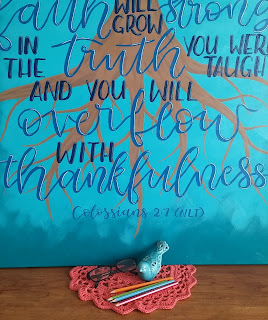 faith WILL GROW strong
IN THE truth YOU WERE TAUGH
AND YOU WILL
overflow
WITH
thankfulness
Colossians 2:7 (NLT)